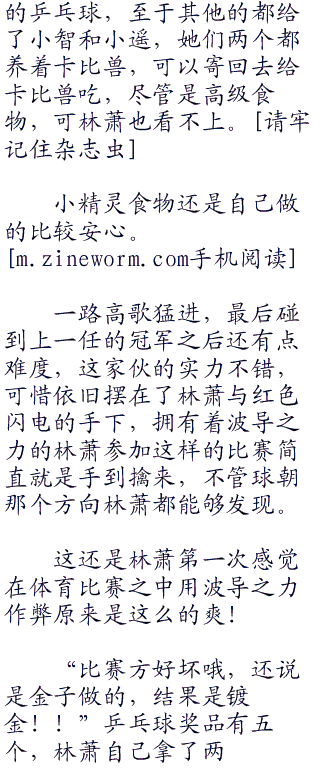 的乒乓球，至于其他的都给
了小智和小遥，她们两个都
养着卡比兽，可以寄回去给
卡比兽吃，尽管是高级食
物，可林萧也看不上。[请牢
记住杂志虫]
小精灵食物还是自己做
的比较安心。
[m.zineworm.com手机阅读]
一路高歌猛进，最后碰
到上一任的冠军之后还有点
难度，这家伙的实力不错，
可惜依旧摆在了林萧与红色
闪电的手下，拥有着波导之
力的林萧参加这样的比赛简
直就是手到擒来，不管球朝
那个方向林萧都能够发现。
这还是林萧第一次感觉
在体育比赛之中用波导之力
作弊原来是这么的爽！
“比赛方好坏哦，还说
是金子做的，结果是镀
金！！”乒乓球奖品有五
个，林萧自己拿了两